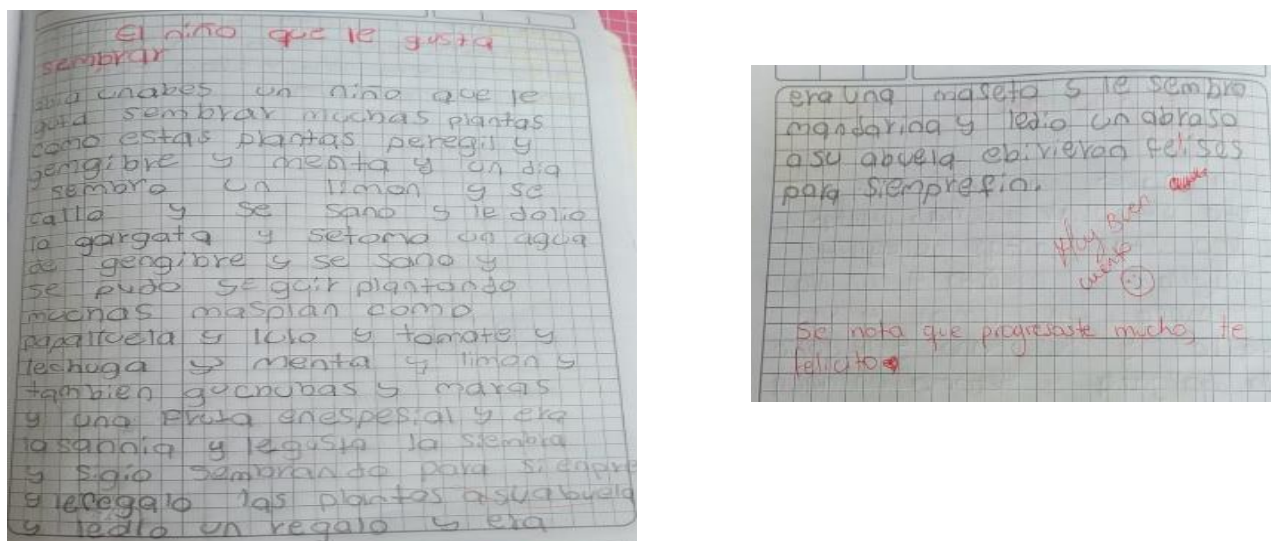 El niño que le gusta
sembrar
abia unabes un niño que le
gusta sembrar muchas plantas
como estas plantas peregil y
gengibre y menta y un dia
sembro un limon y se
callo y se sano y le dolio
la gargata y setomo un agua
de gengibre y se sano y
se pudo seguir plantando
muchas masplan como
papalluela y lulo y tomate y
lechuga y menta y limon y
tanbien guanubas y maras
y una fruta enespesial y era
lasandia y legusta la siembra
y sigio sembrando para sienpre
y leregalo las plantas asuabuela
y ledio un regalo y era
era una maseta y le sembro
mandarina y ledio un abraso
asu abuela ebivieron felises
para siemprefin.
Muy buen
cuento
Se nota que progresaste mucho, te
felicito